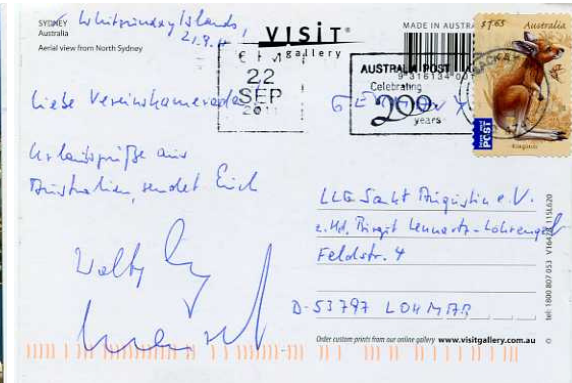 SYDNEY
Australia
Aerial view from North Sydney
Whitsunday Islands,
21.9.11
VISIT®
gallery
MADE IN AUSTRA
9 316134 001
22
SEP
2011
AUSTRALIA POST
Celebrating
200
years
GERMANY
$1.65 Australia
MACKAY
4740
International
POST
Kangaroo
Liebe Vereinskameraden
Urlaubsgrüße aus
Australien, sendet Euch
LLG Sankt Augustin e.V.
z.Hd. Birgit Lennartz-Lohrengel
Feldstr. 4
D-53797 LOHMAR
Order custom prints from our online gallery www.visitgallery.com.au
tel: 1800 807 053 V16421 115L620